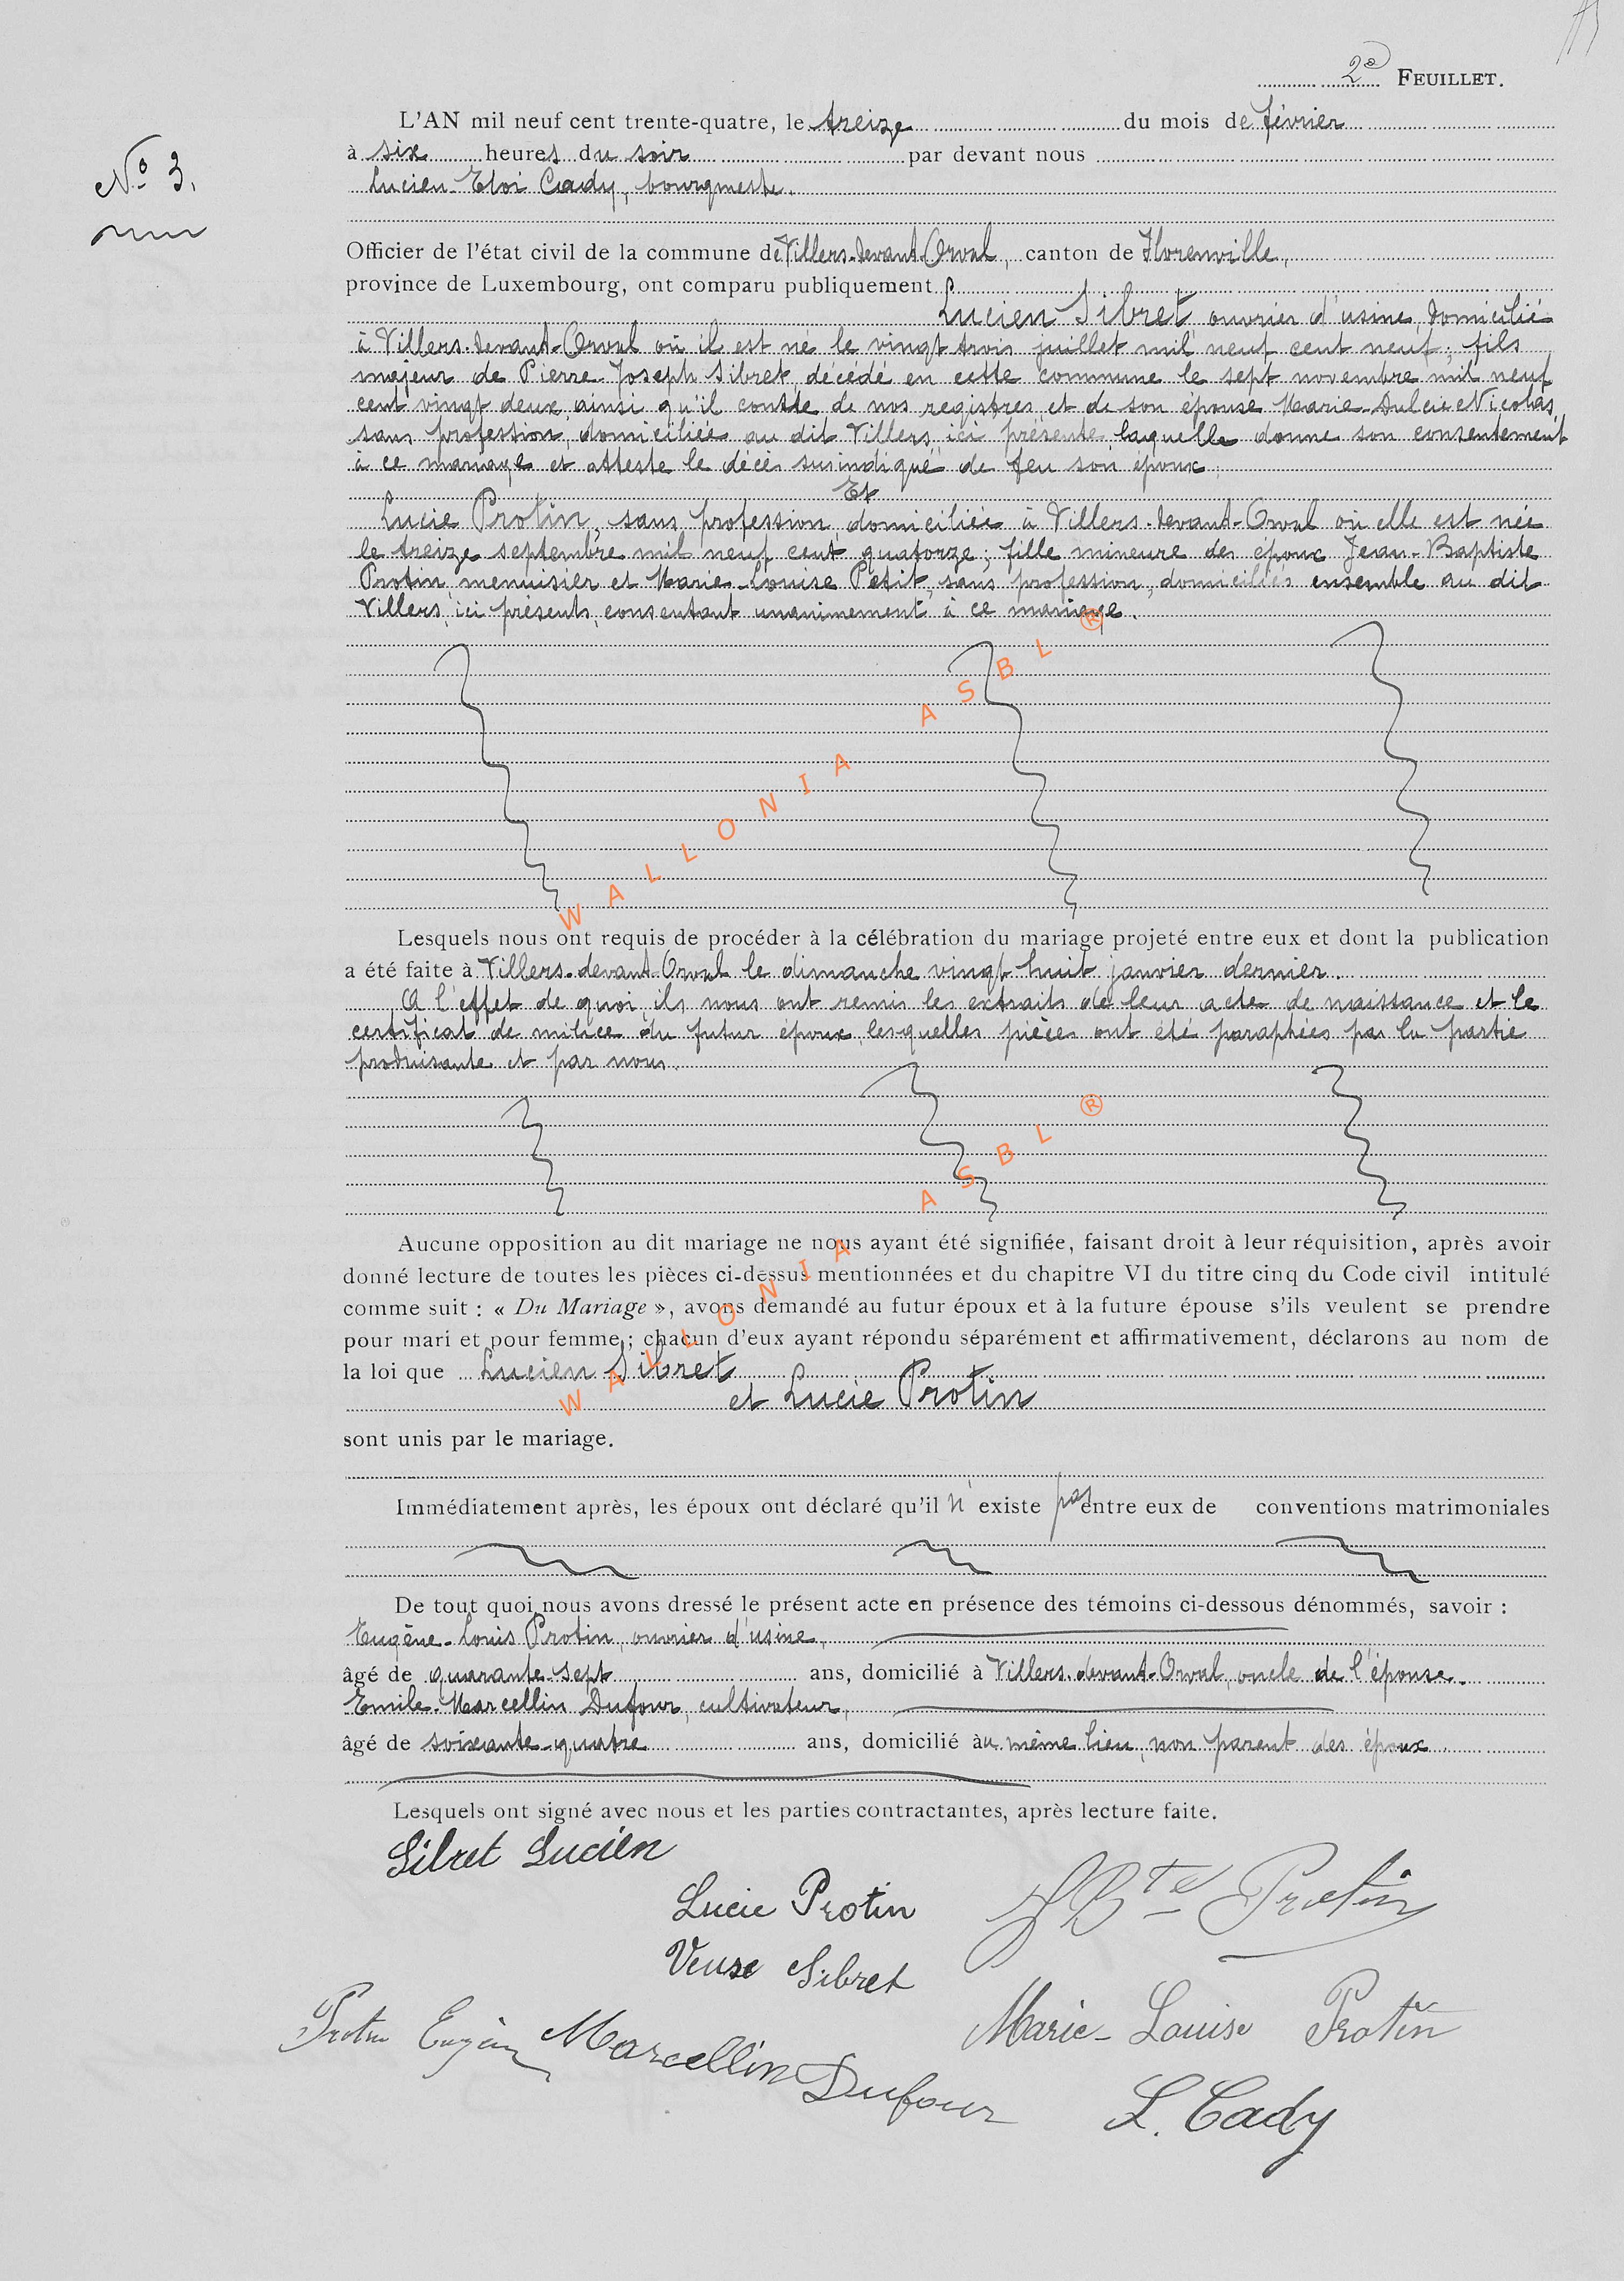 2e FEUILLET.
L'AN mil neuf cent trente-quatre, le treize du mois de février
à six heures du soir par devant nous
N° 3.
Lucien-Eloi Cady, bourgmestre.
Officier de l'état civil de la commune de Villers-devant-Orval, canton de Florenville,
province de Luxembourg, ont comparu publiquement
Lucien Sibret ouvrier d'usine, domicilié
à Villers-devant-Orval où il est né le vingt trois juillet mil neuf cent neuf; fils
majeur de Pierre-Joseph Sibret, décédé en cette commune le sept novembre mil neuf
cent vingt deux, ainsi qu'il conste de nos registres et de son épouse Marie-Dulcie Nicolas,
sans profession, domiciliée au dit Villers, ici présente laquelle donne son consentement
à ce mariage et atteste le décès susindiqué de feu son époux,
Et
Lucie Protin, sans profession, domiciliée à Villers-devant-Orval où elle est née
le treize septembre mil neuf cent quatorze; fille mineure des époux Jean-Baptiste
Protin menuisier et Marie-Louise Petit, sans profession, domiciliés ensemble au dit
Villers, ici présents, consentant unanimement à ce mariage.
WALLONIA ASBL ®
Lesquels nous ont requis de procéder à la célébration du mariage projeté entre eux et dont la publication
a été faite à Villers-devant-Orval le dimanche vingt-huit janvier dernier.
A l'effet de quoi, ils nous ont remis les extraits de leur acte de naissance et le
certificat de milice du futur époux, lesquelles pièces ont été paraphées par la partie
produisante et par nous.
WALLONIA ASBL ®
Aucune opposition au dit mariage ne nous ayant été signifiée, faisant droit à leur réquisition, après avoir
donné lecture de toutes les pièces ci-dessus mentionnées et du chapitre VI du titre cinq du Code civil intitulé
comme suit : « Du Mariage », avons demandé au futur époux et à la future épouse s'ils veulent se prendre
pour mari et pour femme; chacun d'eux ayant répondu séparément et affirmativement, déclarons au nom de
la loi que Lucien Sibret
et Lucie Protin
sont unis par le mariage.
Immédiatement après, les époux ont déclaré qu'il n'existe pas entre eux de conventions matrimoniales
De tout quoi nous avons dressé le présent acte en présence des témoins ci-dessous dénommés, savoir :
Eugène-Louis Protin, ouvrier d'usine,
âgé de quarante-sept ans, domicilié à Villers-devant-Orval, oncle de l'épouse.
Emile-Marcellin Dufour, cultivateur,
âgé de soixante-quatre ans, domicilié au même lieu, non parent des époux
Lesquels ont signé avec nous et les parties contractantes, après lecture faite.
Sibret Lucien
Lucie Protin
JBte Protin
Veuve Sibret
Marie-Louise Protin
Protin Eugène
Marcellin Dufour
L. Cady